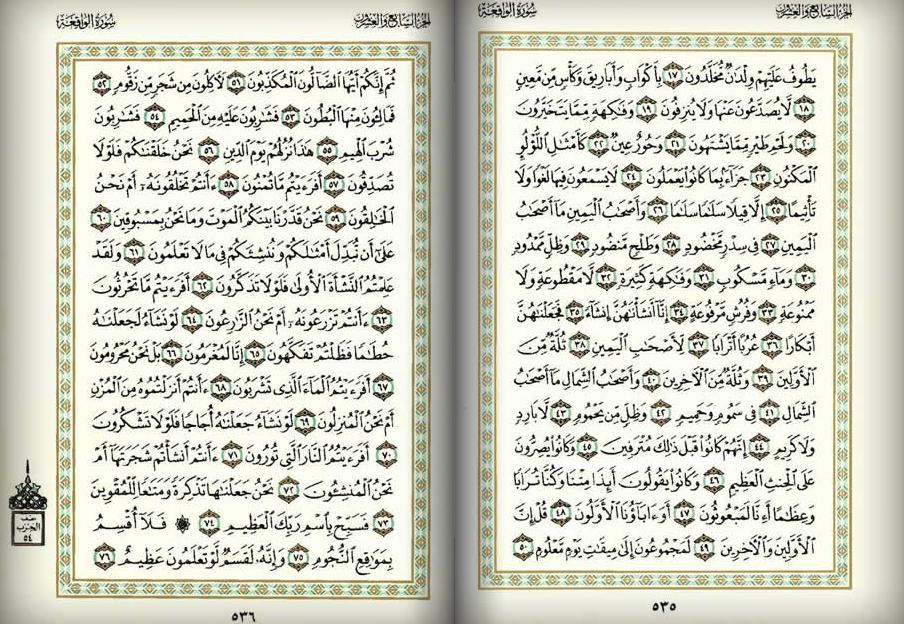 الجزء السابع والعشرون
سورة الواقعة
يَطُوفُ عَلَيْهِمْ وِلْدَٰنٌ مُّخَلَّدُونَ ١٧ بِأَكْوَابٍ وَأَبَارِيقَ وَكَأْسٍ مِّن مَّعِينٍ
١٨ لَّا يُصَدَّعُونَ عَنْهَا وَلَا يُنزِفُونَ ١٩ وَفَٰكِهَةٍ مِّمَّا يَتَخَيَّرُونَ
٢٠ وَلَحْمِ طَيْرٍ مِّمَّا يَشْتَهُونَ ٢١ وَحُورٌ عِينٌ ٢٢ كَأَمْثَٰلِ اللُّؤْلُوِٕ
الْمَكْنُونِ ٢٣ جَزَآءًۢ بِمَا كَانُوا۟ يَعْمَلُونَ ٢٤ لَا يَسْمَعُونَ فِيهَا لَغْوًا وَلَا
تَأْثِيمًا ٢٥ إِلَّا قِيلًا سَلَٰمًا سَلَٰمًا ٢٦ وَأَصْحَٰبُ الْيَمِينِ مَآ أَصْحَٰبُ
الْيَمِينِ ٢٧ فِى سِدْرٍ مَّخْضُودٍ ٢٨ وَطَلْحٍ مَّنضُودٍ ٢٩ وَظِلٍّ مَّمْدُودٍ
٣٠ وَمَآءٍ مَّسْكُوبٍ ٣١ وَفَٰكِهَةٍ كَثِيرَةٍ ٣٢ لَّا مَقْطُوعَةٍ وَلَا
مَمْنُوعَةٍ ٣٣ وَفُرُشٍ مَّرْفُوعَةٍ ٣٤ إِنَّآ أَنشَأْنَٰهُنَّ إِنشَآءً ٣٥ فَجَعَلْنَٰهُنَّ
أَبْكَارًا ٣٦ عُرُبًا أَتْرَابًا ٣٧ لِّأَصْحَٰبِ الْيَمِينِ ٣٨ ثُلَّةٌ مِّنَ
الْأَوَّلِينَ ٣٩ وَثُلَّةٌ مِّنَ الْءَاخِرِينَ ٤٠ وَأَصْحَٰبُ الشِّمَالِ مَآ أَصْحَٰبُ
الشِّمَالِ ٤١ فِى سَمُومٍ وَحَمِيمٍ ٤٢ وَظِلٍّ مِّن يَحْمُومٍ ٤٣ لَّا بَارِدٍ
وَلَا كَرِيمٍ ٤٤ إِنَّهُمْ كَانُوا۟ قَبْلَ ذَٰلِكَ مُتْرَفِينَ ٤٥ وَكَانُوا۟ يُصِرُّونَ
عَلَى الْحِنثِ الْعَظِيمِ ٤٦ وَكَانُوا۟ يَقُولُونَ أَئِذَا مِتْنَا وَكُنَّا تُرَابًا
وَعِظَٰمًا أَءِنَّا لَمَبْعُوثُونَ ٤٧ أَوَءَابَآؤُنَا الْأَوَّلُونَ ٤٨ قُلْ إِنَّ
الْأَوَّلِينَ وَالْءَاخِرِينَ ٤٩ لَمَجْمُوعُونَ إِلَىٰ مِيقَٰتِ يَوْمٍ مَّعْلُومٍ ٥٠
٥٣٥
الجزء السابع والعشرون
سورة الواقعة
ثُمَّ إِنَّكُمْ أَيُّهَا الضَّآلُّونَ الْمُكَذِّبُونَ ٥١ لَءَاكِلُونَ مِن شَجَرٍ مِّن زَقُّومٍ ٥٢
فَمَالِـُٔونَ مِنْهَا الْبُطُونَ ٥٣ فَشَٰرِبُونَ عَلَيْهِ مِنَ الْحَمِيمِ ٥٤ فَشَٰرِبُونَ
شُرْبَ الْهِيمِ ٥٥ هَٰذَا نُزُلُهُمْ يَوْمَ الدِّينِ ٥٦ نَحْنُ خَلَقْنَٰكُمْ فَلَوْلَا
تُصَدِّقُونَ ٥٧ أَفَرَءَيْتُم مَّا تُمْنُونَ ٥٨ ءَأَنتُمْ تَخْلُقُونَهُۥٓ أَمْ نَحْنُ
الْخَٰلِقُونَ ٥٩ نَحْنُ قَدَّرْنَا بَيْنَكُمُ الْمَوْتَ وَمَا نَحْنُ بِمَسْبُوقِينَ ٦٠
عَلَىٰٓ أَن نُّبَدِّلَ أَمْثَٰلَكُمْ وَنُنشِئَكُمْ فِى مَا لَا تَعْلَمُونَ ٦١ وَلَقَدْ
عَلِمْتُمُ النَّشْأَةَ الْأُولَىٰ فَلَوْلَا تَذَكَّرُونَ ٦٢ أَفَرَءَيْتُم مَّا تَحْرُثُونَ
٦٣ ءَأَنتُمْ تَزْرَعُونَهُۥٓ أَمْ نَحْنُ الزَّٰرِعُونَ ٦٤ لَوْ نَشَآءُ لَجَعَلْنَٰهُ
حُطَٰمًا فَظَلْتُمْ تَفَكَّهُونَ ٦٥ إِنَّا لَمُغْرَمُونَ ٦٦ بَلْ نَحْنُ مَحْرُومُونَ
٦٧ أَفَرَءَيْتُمُ الْمَآءَ الَّذِى تَشْرَبُونَ ٦٨ ءَأَنتُمْ أَنزَلْتُمُوهُ مِنَ الْمُزْنِ
أَمْ نَحْنُ الْمُنزِلُونَ ٦٩ لَوْ نَشَآءُ جَعَلْنَٰهُ أُجَاجًا فَلَوْلَا تَشْكُرُونَ
٧٠ أَفَرَءَيْتُمُ النَّارَ الَّتِى تُورُونَ ٧١ ءَأَنتُمْ أَنشَأْتُمْ شَجَرَتَهَآ أَمْ
نَحْنُ الْمُنشِـُٔونَ ٧٢ نَحْنُ جَعَلْنَٰهَا تَذْكِرَةً وَمَتَٰعًا لِّلْمُقْوِينَ
٧٣ فَسَبِّحْ بِاسْمِ رَبِّكَ الْعَظِيمِ ٧٤ ۞ فَلَآ أُقْسِمُ
بِمَوَٰقِعِ النُّجُومِ ٧٥ وَإِنَّهُۥ لَقَسَمٌ لَّوْ تَعْلَمُونَ عَظِيمٌ ٧٦
نصف
الحزب
٥٤
٥٣٦